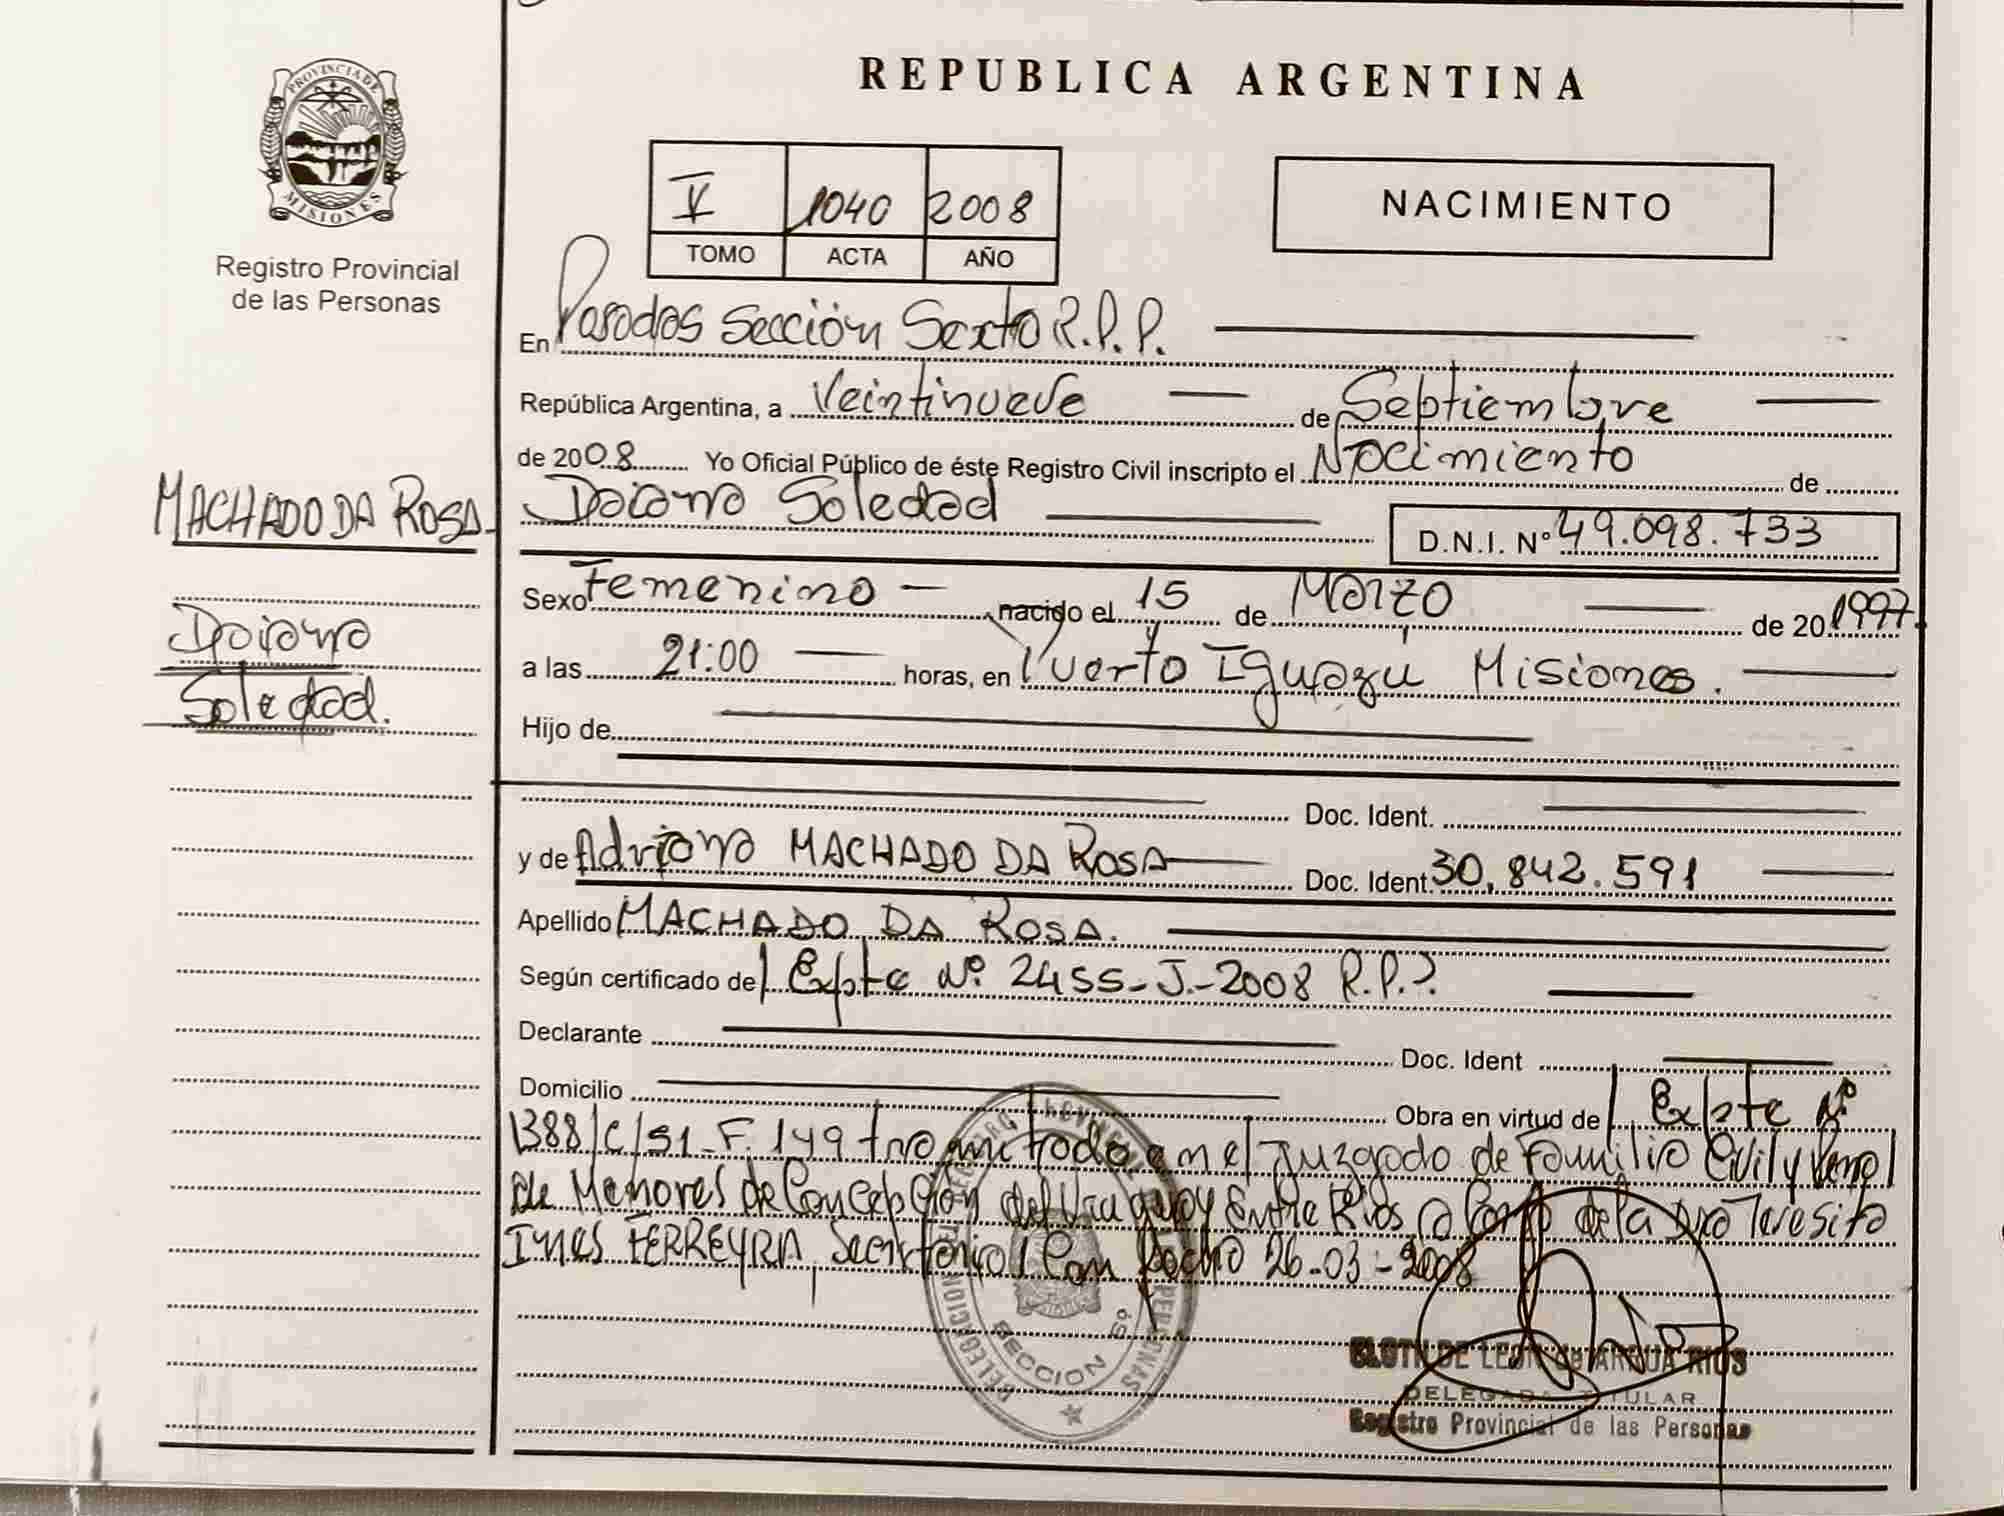 PROVINCIA DE
MISIONES
Registro Provincial
de las Personas
REPUBLICA ARGENTINA
V 1040 2008
TOMO ACTA AÑO
NACIMIENTO
En Posadas Sección Sexta R.P.P.
República Argentina, a Veintinueve de Septiembre
de 2008 Yo Oficial Público de éste Registro Civil inscripto el Nacimiento de
MACHADO DA ROSA
Daiana Soledad
D.N.I. Nº 49.098.733
Sexo Femenino nacido el 15 de Marzo de 20 1997.
Daiana
Soledad.
a las 21:00 horas, en Puerto Iguazú Misiones.
Hijo de
Doc. Ident.
y de Adriana MACHADO DA ROSA Doc. Ident. 30.842.591
Apellido MACHADO DA ROSA.
Según certificado de Expte Nº 2455-J-2008 R.P.P.
Declarante Doc. Ident
Domicilio Obra en virtud de Expte Nº
1388/C/S1-F.149 tramitado en el Juzgado de Familia Civil y Penal
de Menores de Concepción del Uruguay Entre Rios a Cargo de la Dra Teresita
Ines FERREYRA, Con fecha 26-03-2008
SECCION 6º
CLOTILDE LEON de RIOS
DELEGADA TITULAR
Registro Provincial de las Personas